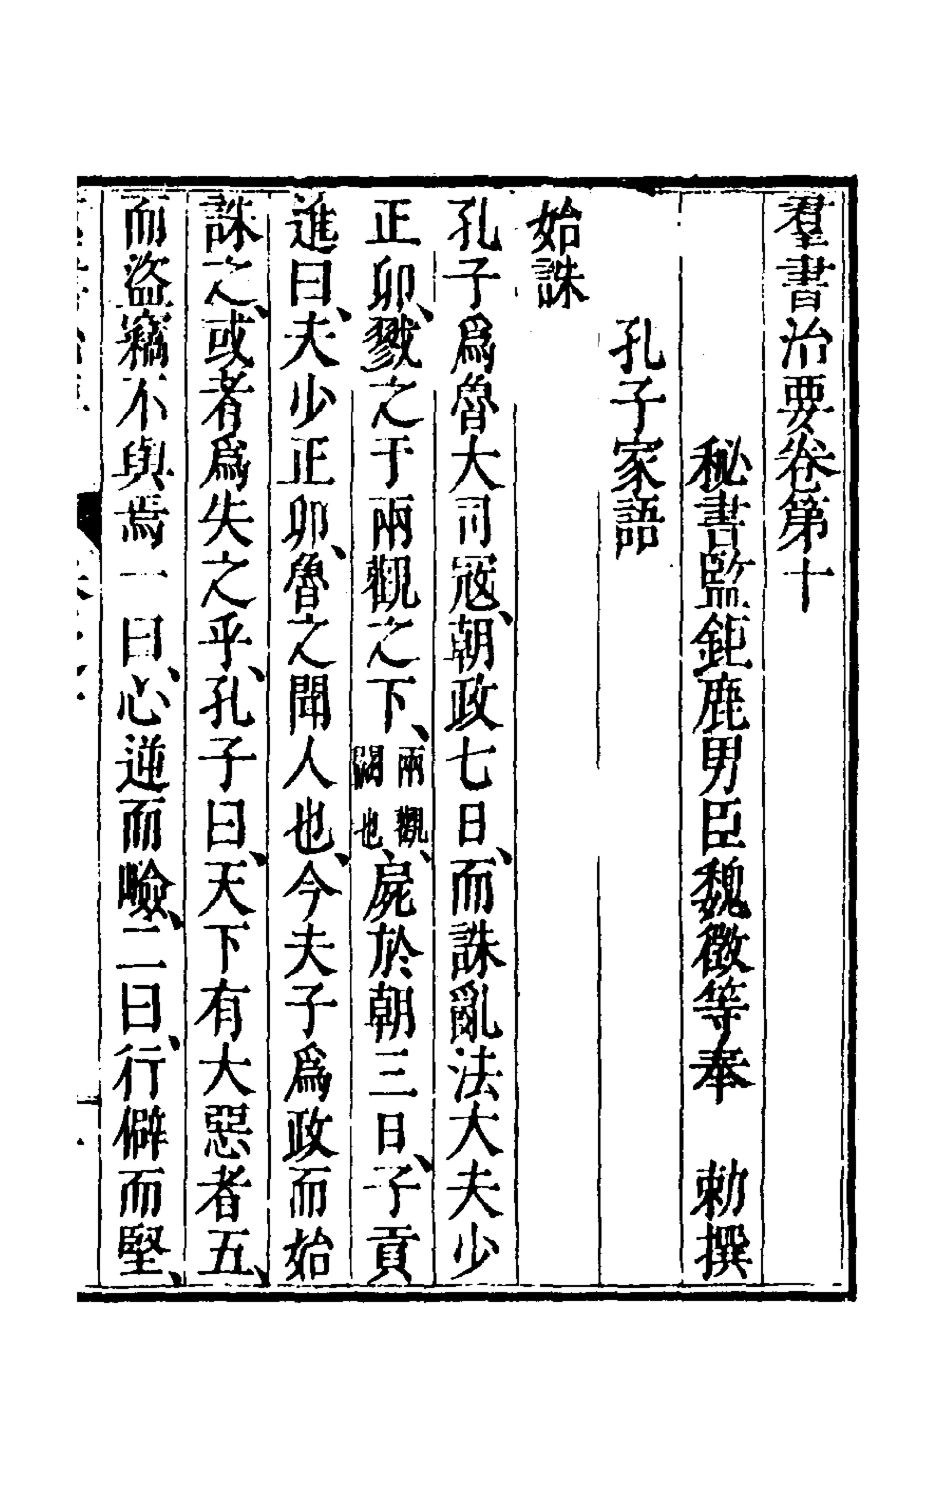 羣書治要卷第十
秘書監鉅鹿男臣魏徵等奉　勅撰
孔子家語
始誅
孔子爲魯大司寇、朝政七日、而誅亂法大夫少
正卯、戮之于兩觀之下、兩觀、闕也、屍於朝三日、子貢
進曰、夫少正卯、魯之聞人也、今夫子爲政而始
誅之、或者爲失之乎、孔子曰、天下有大惡者五、
而盜竊不與焉一曰、心逆而嶮、二曰、行僻而堅、